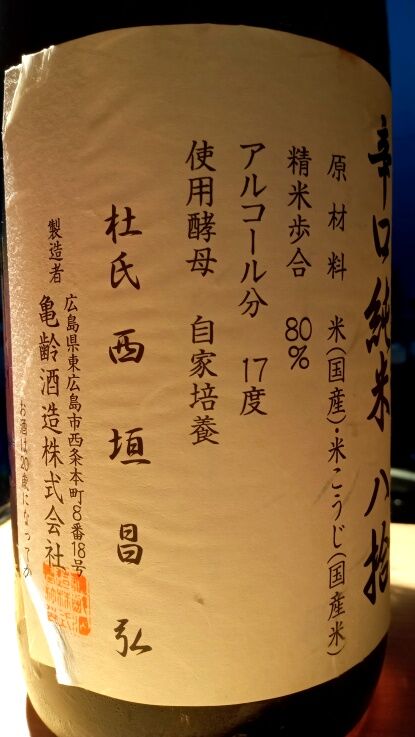 辛口純米 八拾
原材料 米(国産)・米こうじ(国産米)
精米歩合 80%
アルコール分 17度
使用酵母 自家培養
杜氏 西垣昌弘
広島県東広島市西条本町8番18号
製造者 亀齢酒造株式会社
お酒は20歳になってか